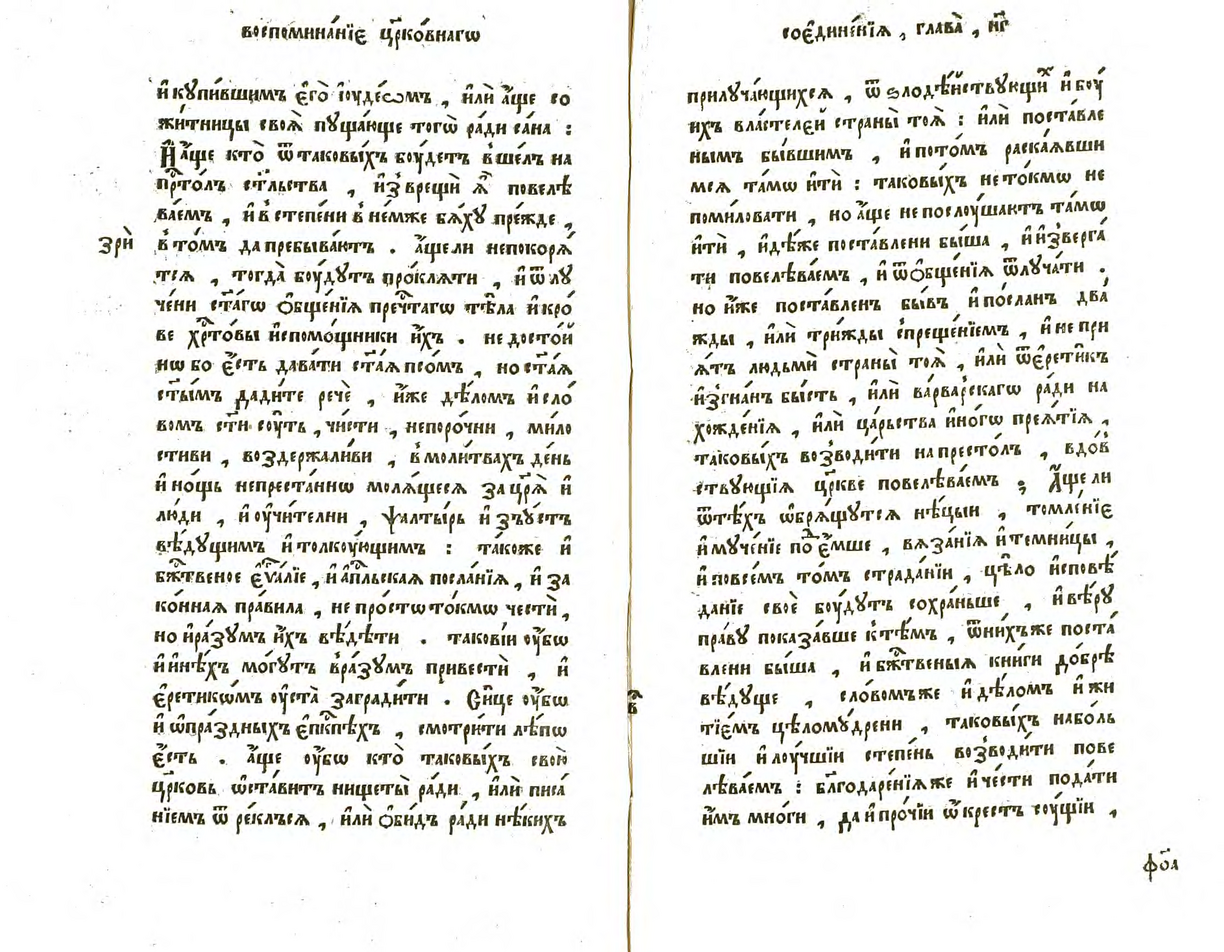 воспомина́нїє цр҃ко́внагѡ
и҆ купи́вшимъ є҆го̀ і҆ѹде́ѡмъ , и҆лѝ а҆́ще со
жи́тницы своѧ̀ пꙋща́юще тогѡ̀ ра́ди са́на :
И҆ а҆́ще кто̀ ѿ таковы́хъ бо́ꙋдетъ вше́лъ на
прⷭ҇то́лъ ст҃льства , и҆зврещѝ ѧ҆̀ повелѣ
ва́емъ , и҆ в степе́ни в не́мже бѧ́хꙋ пре́жде ,
зрѝ
в то́мъ да пребыва́ютъ . а҆́ще ли непокорѧ́
тсѧ , тогда̀ бо́ꙋдꙋтъ про́клѧти , и҆ ѿлꙋ
че́ни ст҃а́гѡ ѻ҆бще́нїѧ пречⷭ҇тагѡ тѣ́ла и҆ кро́
ве хрⷭ҇то́вы и҆ спомо́щники и҆́хъ . не досто́й
нѡ бо є҆́сть дава́ти ст҃а́ѧ псо́мъ , но ст҃а́ѧ
ст҃ы́мъ дади́те речѐ , и҆́же дѣ́ломъ и҆ сло́
вомъ ст҃и со́ꙋть , чи́сти , непоро́чни , ми́ло
стиви , воздержали́ви , в моли́твахъ де́нь
и҆ но́щь непреста́ннѡ молѧ́щесѧ за цр҃ѧ̀ и҆
лю́ди , и҆ ᲂу҆чи́телни , ѱалты́рь и҆ зъꙋ́стъ
вѣ́дꙋщимъ и҆ толкоꙋ́ющимъ : та́коже и҆
бж҃твеное є҆ѵⷢ҇а́лїе , и҆ а҆пⷭ҇льская посла́нїѧ , и҆ за
ко́нная пра́вила , не про́стѡ то́кмѡ честѝ ,
но и҆ ра́зꙋмъ и҆́хъ вѣ́дѣти . такові́и ᲂу҆́бѡ
и҆ и҆нѣ́хъ мо́гꙋтъ в ра́зꙋмъ привестѝ , и҆
є҆ретикѡ́мъ ᲂу҆ста̀ загради́ти . Си́це ᲂу҆́бѡ
и҆ ѡ҆ пра́здныхъ є҆пⷭ҇кпѣхъ , смотри́ти лѣ́пѡ
є҆́сть . а҆́ще ᲂу҆́бѡ кто̀ таковы́хъ свою̀
цр҃ковь ѡ҆ста́витъ нищеты̀ ра́ди , и҆лѝ писа́
нїемъ ѿре́клъсѧ , и҆лѝ ѻ҆би́дъ ра́ди нѣ́кихъ
соєдине́нїѧ , глава̀ , н҃г
прилꙋча́ющихсѧ , ѿ ѕлодѣ́йствꙋющиⷯ и҆ боꙋ́
ихъ власте́лей страны̀ тоѧ̀ : и҆лѝ поста́вле
нымъ бы́вшимъ , и҆ пото́мъ раска́ѧвши
мсѧ та́мѡ и҆тѝ : таковы́хъ не то́кмѡ не
поми́ловати , но а҆́ще не послоꙋ́шаютъ та́мѡ
и҆тѝ , и҆дѣ́же поста́влени бы́ша , и҆ и҆зверга́
ти повелѣва́емъ , и҆ ѿ ѻ҆бще́нїѧ ѿлꙋча́ти .
но и҆́же поста́вленъ бы́въ и҆ по́сланъ два́
жды , и҆лѝ три́жды спреще́нїемъ , и҆ не при
ѧ́тъ людьмѝ страны̀ тоѧ̀ , и҆лѝ ѿ є҆рети́къ
и҆згна́нъ бы́сть , и҆лѝ ва́рварскагѡ ра́ди на
хожде́нїѧ , и҆лѝ ца́рьства и҆но́гѡ преѧ́тїѧ ,
таковы́хъ возводи́ти на престо́лъ , вдов
ствꙋющїѧ цр҃кве повелѣва́емъ ; А҆́ще ли
ѿ тѣ́хъ ѡ҆брѧ́щꙋтсѧ нѣ́цыи , томле́нїє
и҆ мꙋче́нїе поⷣє҆́мше , вѧза́нїѧ и҆ темни́цы ,
и҆ повсе́мъ то́мъ страда́нїи , цѣ́ло и҆сповѣ́
да́нїе своѐ бо́ꙋдꙋтъ сохра́ньше , и҆ вѣ́рꙋ
пра́вꙋ показа́вше к тѣ́мъ , ѿ ни́хъже поста́
влени бы́ша , и҆ бж҃твеныѧ кни́ги до́брѣ
вѣ́дꙋще , сло́вомъже и҆ дѣ́ломъ и҆ жи
тїє́мъ цѣломꙋ́дрени , таковы́хъ набо́ль
шїи и҆ лоꙋ́чшїи степе́нь возводи́ти пове
лѣва́емъ : бл҃годаре́нїѧже и҆ че́сти пода́ти
и҆̀мъ мно́ги , да и҆ про́чїи ѡ҆́крестъ со́ꙋщїи ,
фо҃а